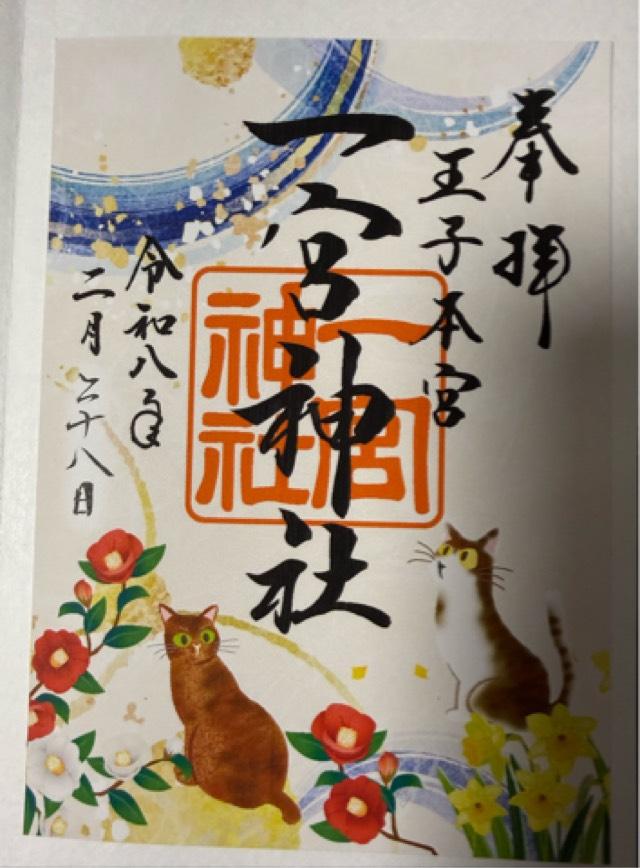 奉拝
王子本宮
一宮神社
一宮
神社
令和八年
二月二十八日